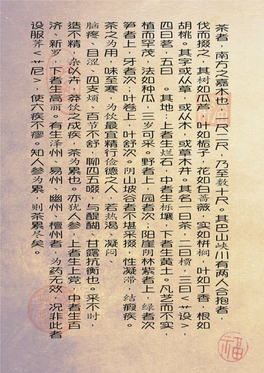 茶者，南方之嘉木也，一尺二尺，乃至数十尺。其巴山峡川有两人合抱者，
伐而掇之，其树如瓜芦，叶如栀子，花如白蔷薇，实如栟榈，叶如丁香，根如
胡桃。其字或从草，或从木，或草木并。其名一曰茶，二曰槚，三曰<艹设>，
四曰茗，五曰 。其地：上者生烂石，中者生栎壤，下者生黄土。凡艺而不实，
植而罕茂，法如种瓜，三岁可采。野者上，园者次；阳崖阴林紫者上，绿者次；
笋者上，牙者次；叶卷上，叶舒次。阴山坡谷者不堪采掇，性凝滞，结瘕疾。
茶之为用，味至寒，为饮最宜精行俭德之人，若热渴、凝闷、
脑疼、目涩、四支烦、百节不舒，聊四五啜，与醍醐、甘露抗衡也。采不时，
造不精，杂以卉，莽饮之成疾，茶为累也。亦犹人参，上者生上党，中者生百
济、新罗，下者生高丽。有生泽州、易州、幽州、檀州者，为药无效，况非此者
设服荠<艹尼>，使六疾不瘳。知人参为累，则茶累尽矣。
福